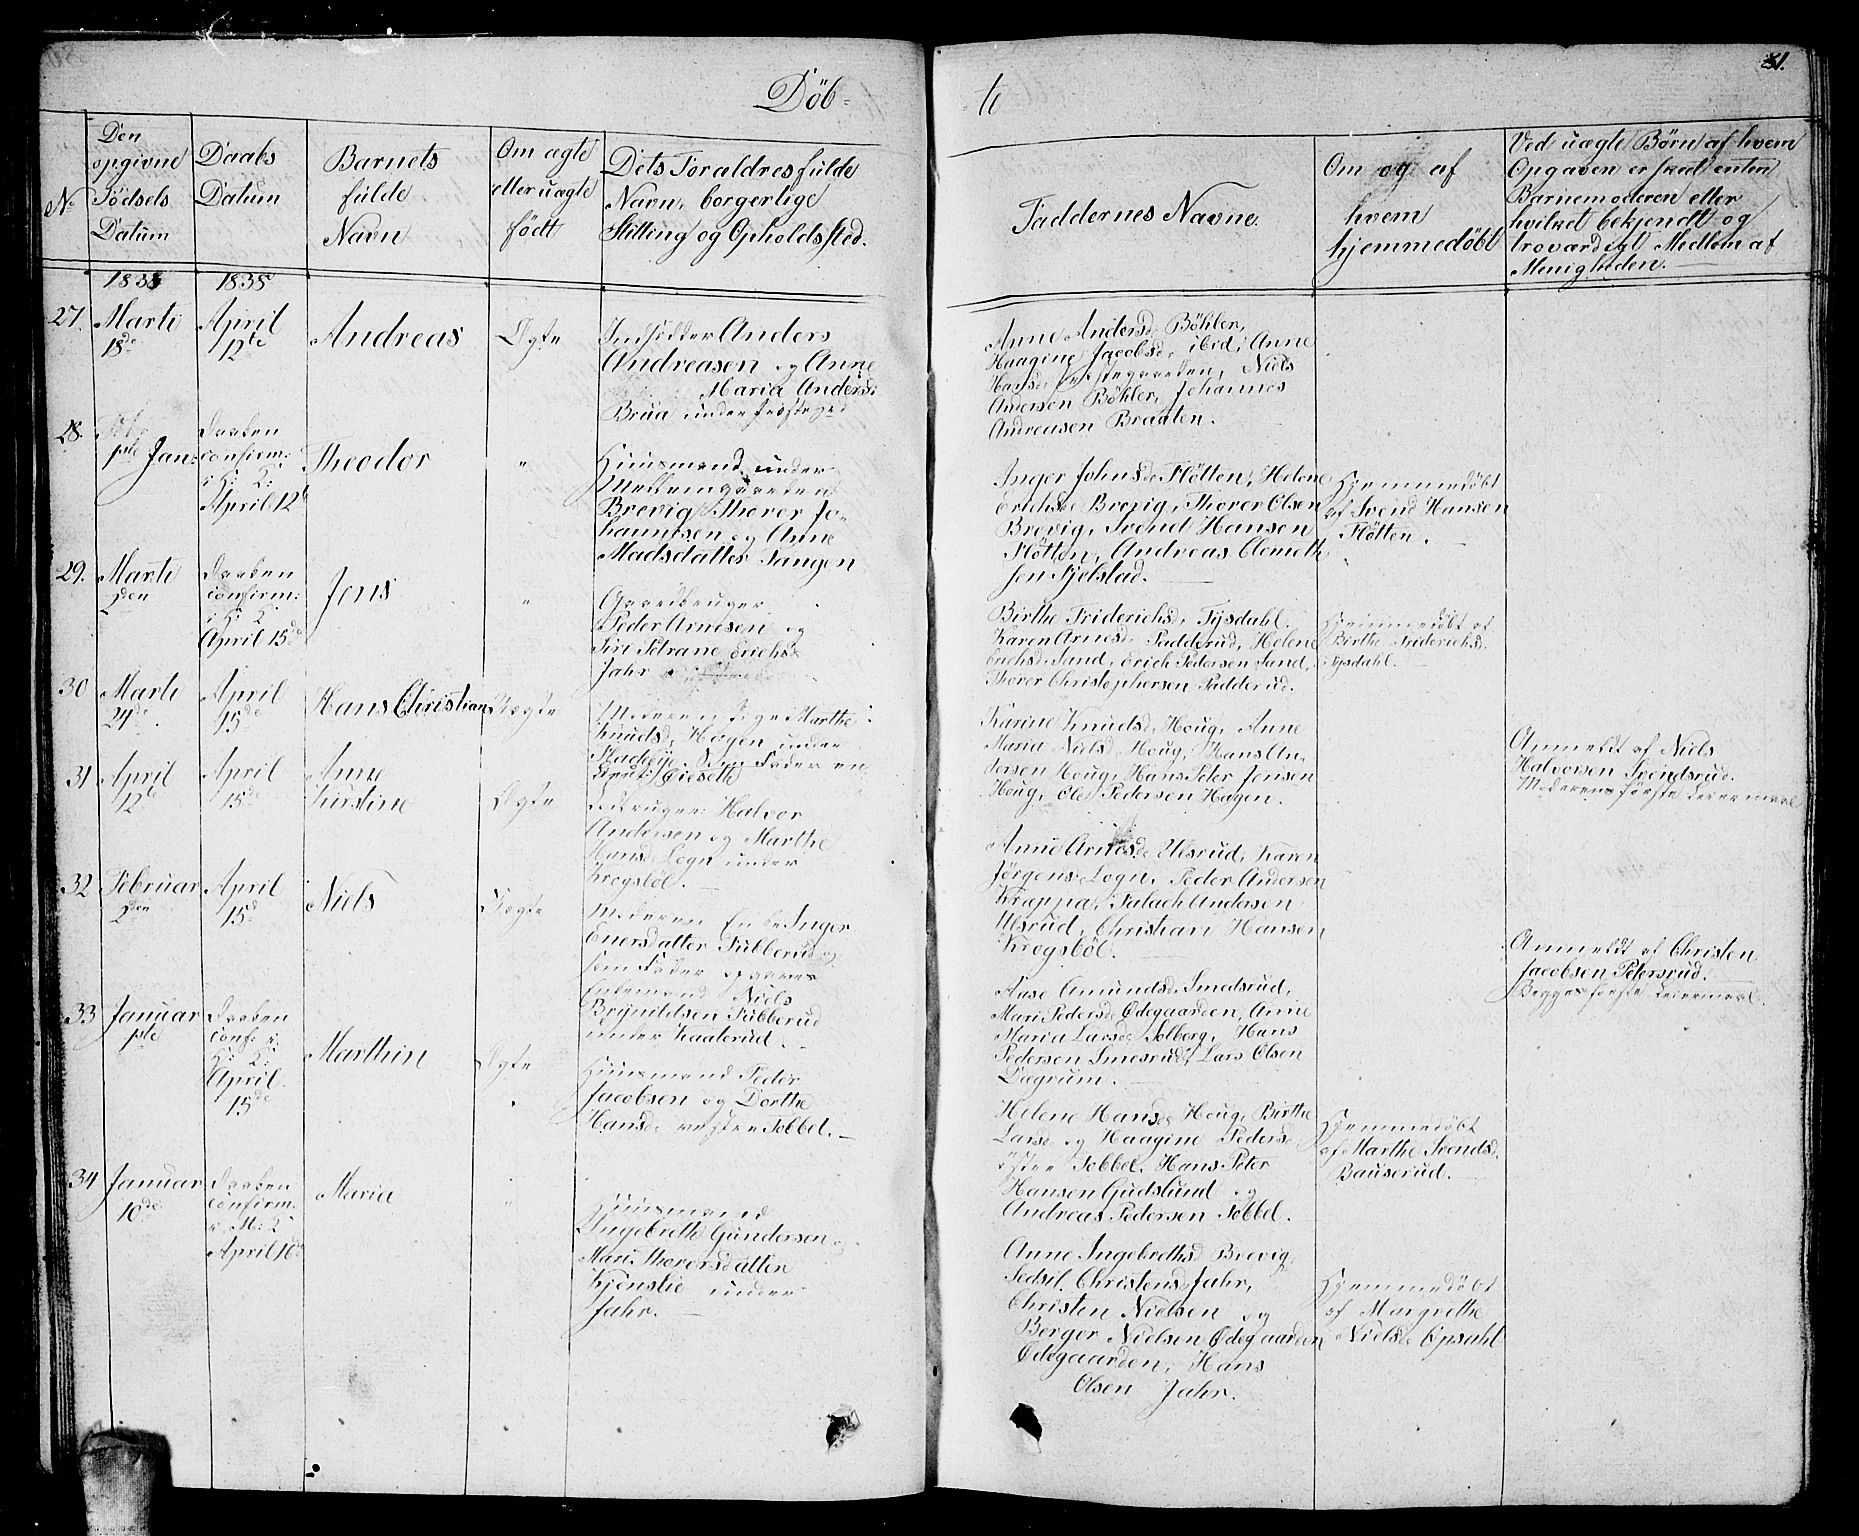 Döb-
te
81.
No
Den opgivne Födsels Datum
Daabs Datum
Barnets fulde Navn
Om ægte eller uægte födt
Dets Foraldres fulde Navn, borgerlige Stilling og Opholdssted.
Faddernes Navne.
Om og af hvem hjemmedöbt
Ved uægte Børn af hvem Opgaven er skeed enten Barnemoderen eller hvilket bekjendt og troværdigt Medlem af Menigheden.
1835
1835
27. Marti 18de
April 12te
Andreas
Ægte
Indsidder Anders
Andreasen og Anne
Maria Andersd.
Brua under Præstegrd
Anne Andersd. Böhler,
Haagine Jacobsd. ibid, Anne
Hansd. Præstegaarden, Niels
Andersen Böhler, Johannes
Andreasen Braaten.
28.
Jan:
Daaben
confirm:
i H: K:
April 12te
Theodor
"
Huusmand under
Mellemgaarden
Brevig Thorer Jo-
hannesen og Anne
Madsdatter Tangen
Inger Johnsd. Fløtten, Helene
Erichsd. Brevig, Thorer Olsen
Brevig, Svend Hansen
Fløtten, Andreas Clemet-
sen Fjelstad.
Hjemmedöbt
af Svend Hansen
Fløtten.
29. Marti
2den
Daaben
confirm:
i H: K:
April 15de
Jens
"
Gaardbruger
Peder Arnesen og
Siri Petrane Erichsd.
Jahr
Birthe Friderichsd. Fysdahl.
Karen Arnesd. Padderud, Helene
Erichsd. Sand, Erich Pedersen Sand,
Thorer Christophersen Padderud.
Hjemmedöbt af
Birthe Friderichsd.
Fysdahl.
30 Marti
24de
April
15de
Hans Christian
Uægte
Moderen Pige Marthe
Knudsd. Hagen under
Som Fader en
Karine Knudsd. Houg, Anne
Maria Nielsd. Houg, Hans An-
dersen Houg, Hans Peter Jensen
Houg, Ole Pedersen Hagen.
Anmeldt af Niels
Halvorsen Svendsrud.
Moderens første Leiermaal
31 April
12te
April
15de
Anne
Kirstine
Ægte
Halvor
Andersen og Marthe
Hansd. Logn under
Krogsböl.
Anne Arnesd. Ulsrud, Karen
Jörgens. Logn, Peder Andersen
Kroppa, Falach Andersen
Ulsrud, Christian Hansen
Krogsböl.
32 Februar
2den
April
15de
Niels
Uægte
Moderen Enke Inger
Enersdatter Tubberud og
som Fader opgaves
Enkemand Niels
Brynildsen Tubberud
under Kaalerud.
Aase Amundsd. Smedsrud,
Mari Pedersd. Ødegaarden, Anne
Maria Larsd. Solberg, Hans
Pedersen Smesrud, Lars Olsen
Dægrum.
Anmeldt af Christen
Jacobsen Petersrud.
Begges første Leiermaal.
33 Januar
Daaben
conf: i
H: K:
April
15de
Marthin
Ægte
Huusmand Peder
Jacobsen og Dorthe
Hansd. vestre Tobbel.
Helene Hansd. Houg, Birthe
Larsd. og Haagine Pedersd.
östre Tobbel, Hans Peter
Hansen Gudslund og
Andreas Pedersen Tobbel.
Hjemmedöbt
af Marthe Svendsd.
Bauserud.
34 Januar
10de
Daaben
confirm:
April 16de
Maria
"
Huusmand
Ingebreth Gundersen og
Mari Thorersdatter
Kjenstie under
Jahr.
Anne Ingebrethsd. Brevig,
Sedsil Christensd. Jahr,
Christen Nielsen og
Berger Nielsen Ødegaarden
Ødegaarden, Hans
Olsen Jahr.
Hjemmedöbt
af Margrethe
Nielsd. Opsahl